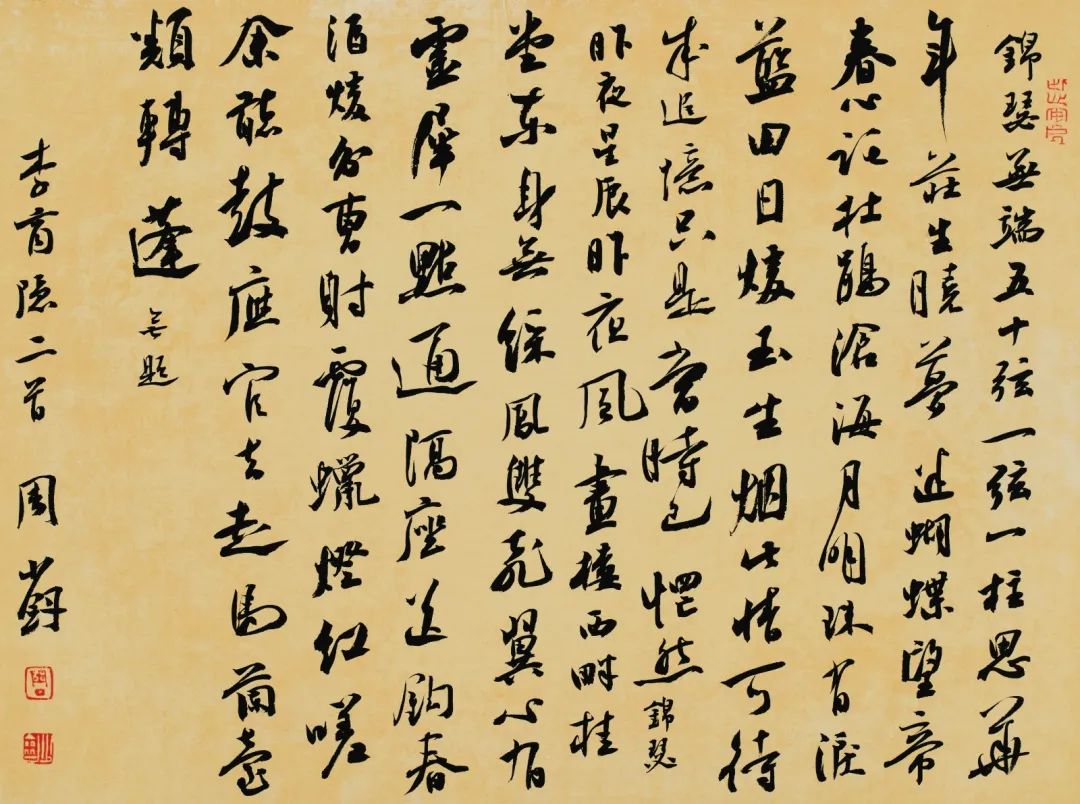 錦瑟無端五十弦一弦一柱思華
年莊生曉夢迷蝴蝶望帝
春心託杜鵑滄海月明珠有淚
藍田日煖玉生烟此情可待
成追憶只是當時已惘然
錦瑟
昨夜星辰昨夜風畫樓西畔桂
堂東身無綵鳳雙飛翼心有
靈犀一點通隔座送鉤春
酒煖分曹射覆蠟燈紅嗟
余聽鼓應官去走馬蘭臺
類轉蓬
無題
李商隱二首 周